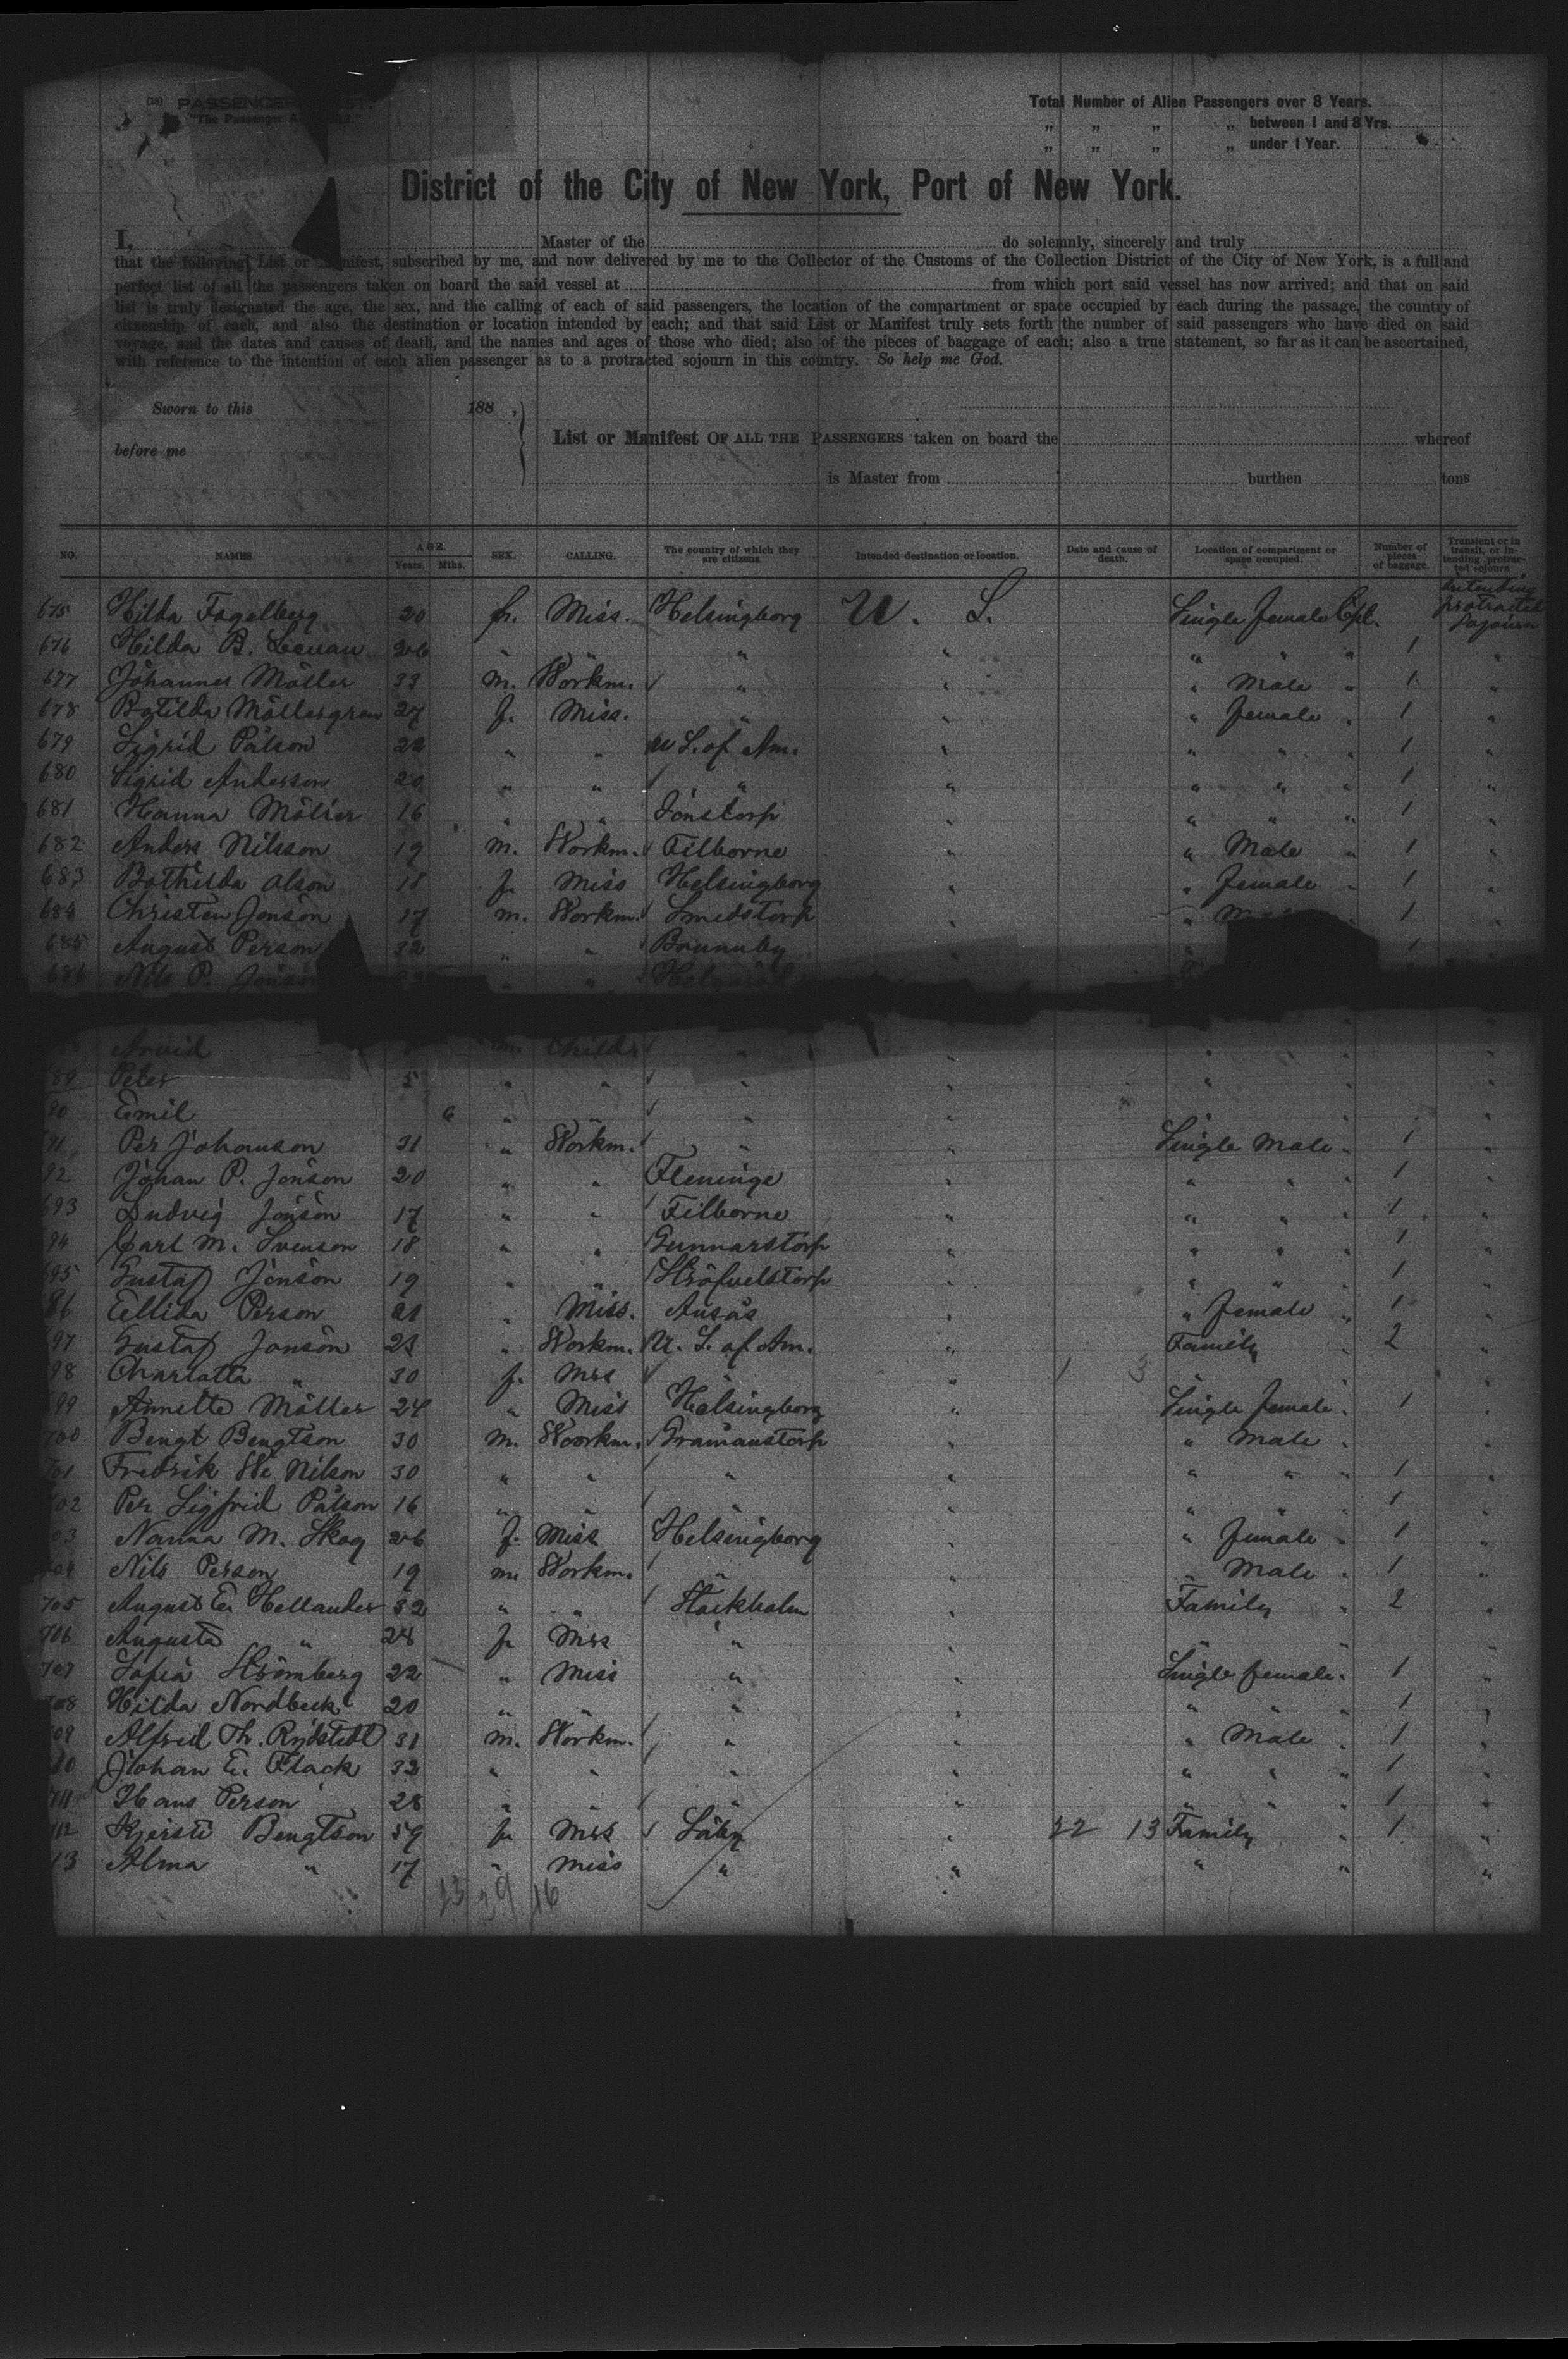 (18) PASSENGER
"The Passenger
Total Number of Alien Passengers over 8 Years.
„ „ „ „ between 1 and 8 Yrs.
„ „ „ „ under 1 Year.
District of the City of New York, Port of New York.
I, Master of the do solemnly, sincerely and truly
that the following List or Manifest, subscribed by me, and now delivered by me to the Collector of the Customs of the Collection District of the City of New York, is a full and
perfect list of all the passengers taken on board the said vessel at from which port said vessel has now arrived; and that on said
list is truly designated the age, the sex, and the calling of each of said passengers, the location of the compartment or space occupied by each during the passage, the country of
citizenship of each, and also the destination or location intended by each; and that said List or Manifest truly sets forth the number of said passengers who have died on said
voyage, and the dates and causes of death, and the names and ages of those who died; also of the pieces of baggage of each; also a true statement, so far as it can be ascertained,
with reference to the intention of each alien passenger as to a protracted sojourn in this country. So help me God.
Sworn to this 188
before me
List or Manifest OF ALL THE PASSENGERS taken on board the whereof
is Master from burthen tons
NO. NAMES AGE. Years. Mths. SEX. CALLING. The country of which they are citizens. Intended destination or location. Date and cause of death. Location of compartment or space occupied. Number of pieces of baggage. Transient or in transit, or intending protracted sojourn
675 Hilda Fagelberg 20 f. Miss. Helsingborg U. S. Single female Cpl. Intending protracted sojourn
676 Hilda B. 26 " " " " " " " 1 "
677 Johannes Möller 33 m. Workm. " " " Male " 1 "
678 Botilda Möllergren 27 f. Miss. " " " female " 1 "
679 Sigrid Pålson 22 " " U S. of Am. " " " " 1 "
680 Sigrid Anderson 20 " " " " " " " 1 "
681 Hanna Möller 16 " " Jonstorp " " " " 1 "
682 Anders Nilsson 19 m. Workm. Filborne " " Male " 1 "
683 Bothilda Olson 18 f. Miss Helsingborg " " female " 1 "
684 Christen Jonson 17 m. Workm. Smedstorp " " 1 "
685 August Person 32 " " Brunnby " " 1 "
686 Nils P. Jonson " "
Arvid m. Childr " " " "
89 Peter 5 " " " " " " "
90 Emil 6 " " " " " " "
91 Per Johanson 31 " Workm. " " Single Male " 1 "
92 Johan P. Jonson 20 " " Fleninge " " " 1 "
93 Ludvig Jonson 17 " " Filborne " " " 1 "
94 Carl M. Svenson 18 " " Gunnarstorp " " " 1 "
695 Gustaf Jönson 19 " " Ströfvelstorp " " " 1 "
96 Ellida Person 21 " Miss. Ausås " " female " 1 "
97 Gustaf Jonson 28 " Workm. U. S. of Am. " Family " 2 "
98 Charlotta " 30 f. Mrs "
99 Annette Möller 24 " Miss Helsingborg " Single female " 1 "
700 Bengt Bengtson 30 m. Workm. Gramanstorp " " Male "
701 Fredrik We Nilson 30 " " " " " " 1 "
702 Per Sigfrid Pålson 16 " " " " " " 1 "
703 Nanna M. Skog 26 f. Miss Helsingborg " " female " 1 "
704 Nils Person 19 m. Workm. " " " Male " 1 "
705 August E. Hellander 32 " " Stockholm " Family " 2 "
706 Augusta " 28 f. Mrs " " " " "
707 Sofia Strömberg 22 " Miss " " Single female " 1 "
708 Hilda Nordbeck 20 " " " " " " " 1 "
709 Alfred Th. Rydstedt 31 m. Workm. " " " Male " 1 "
710 Johan E. Flack 32 " " " " " " " 1 "
711 Hans Person 28 " " " " " " " 1 "
712 Kjersti Bengtson 59 f. Mrs Säby " 22 13 Family " 1 "
13 Alma " 17 " Miss " " " " "
13 29 16